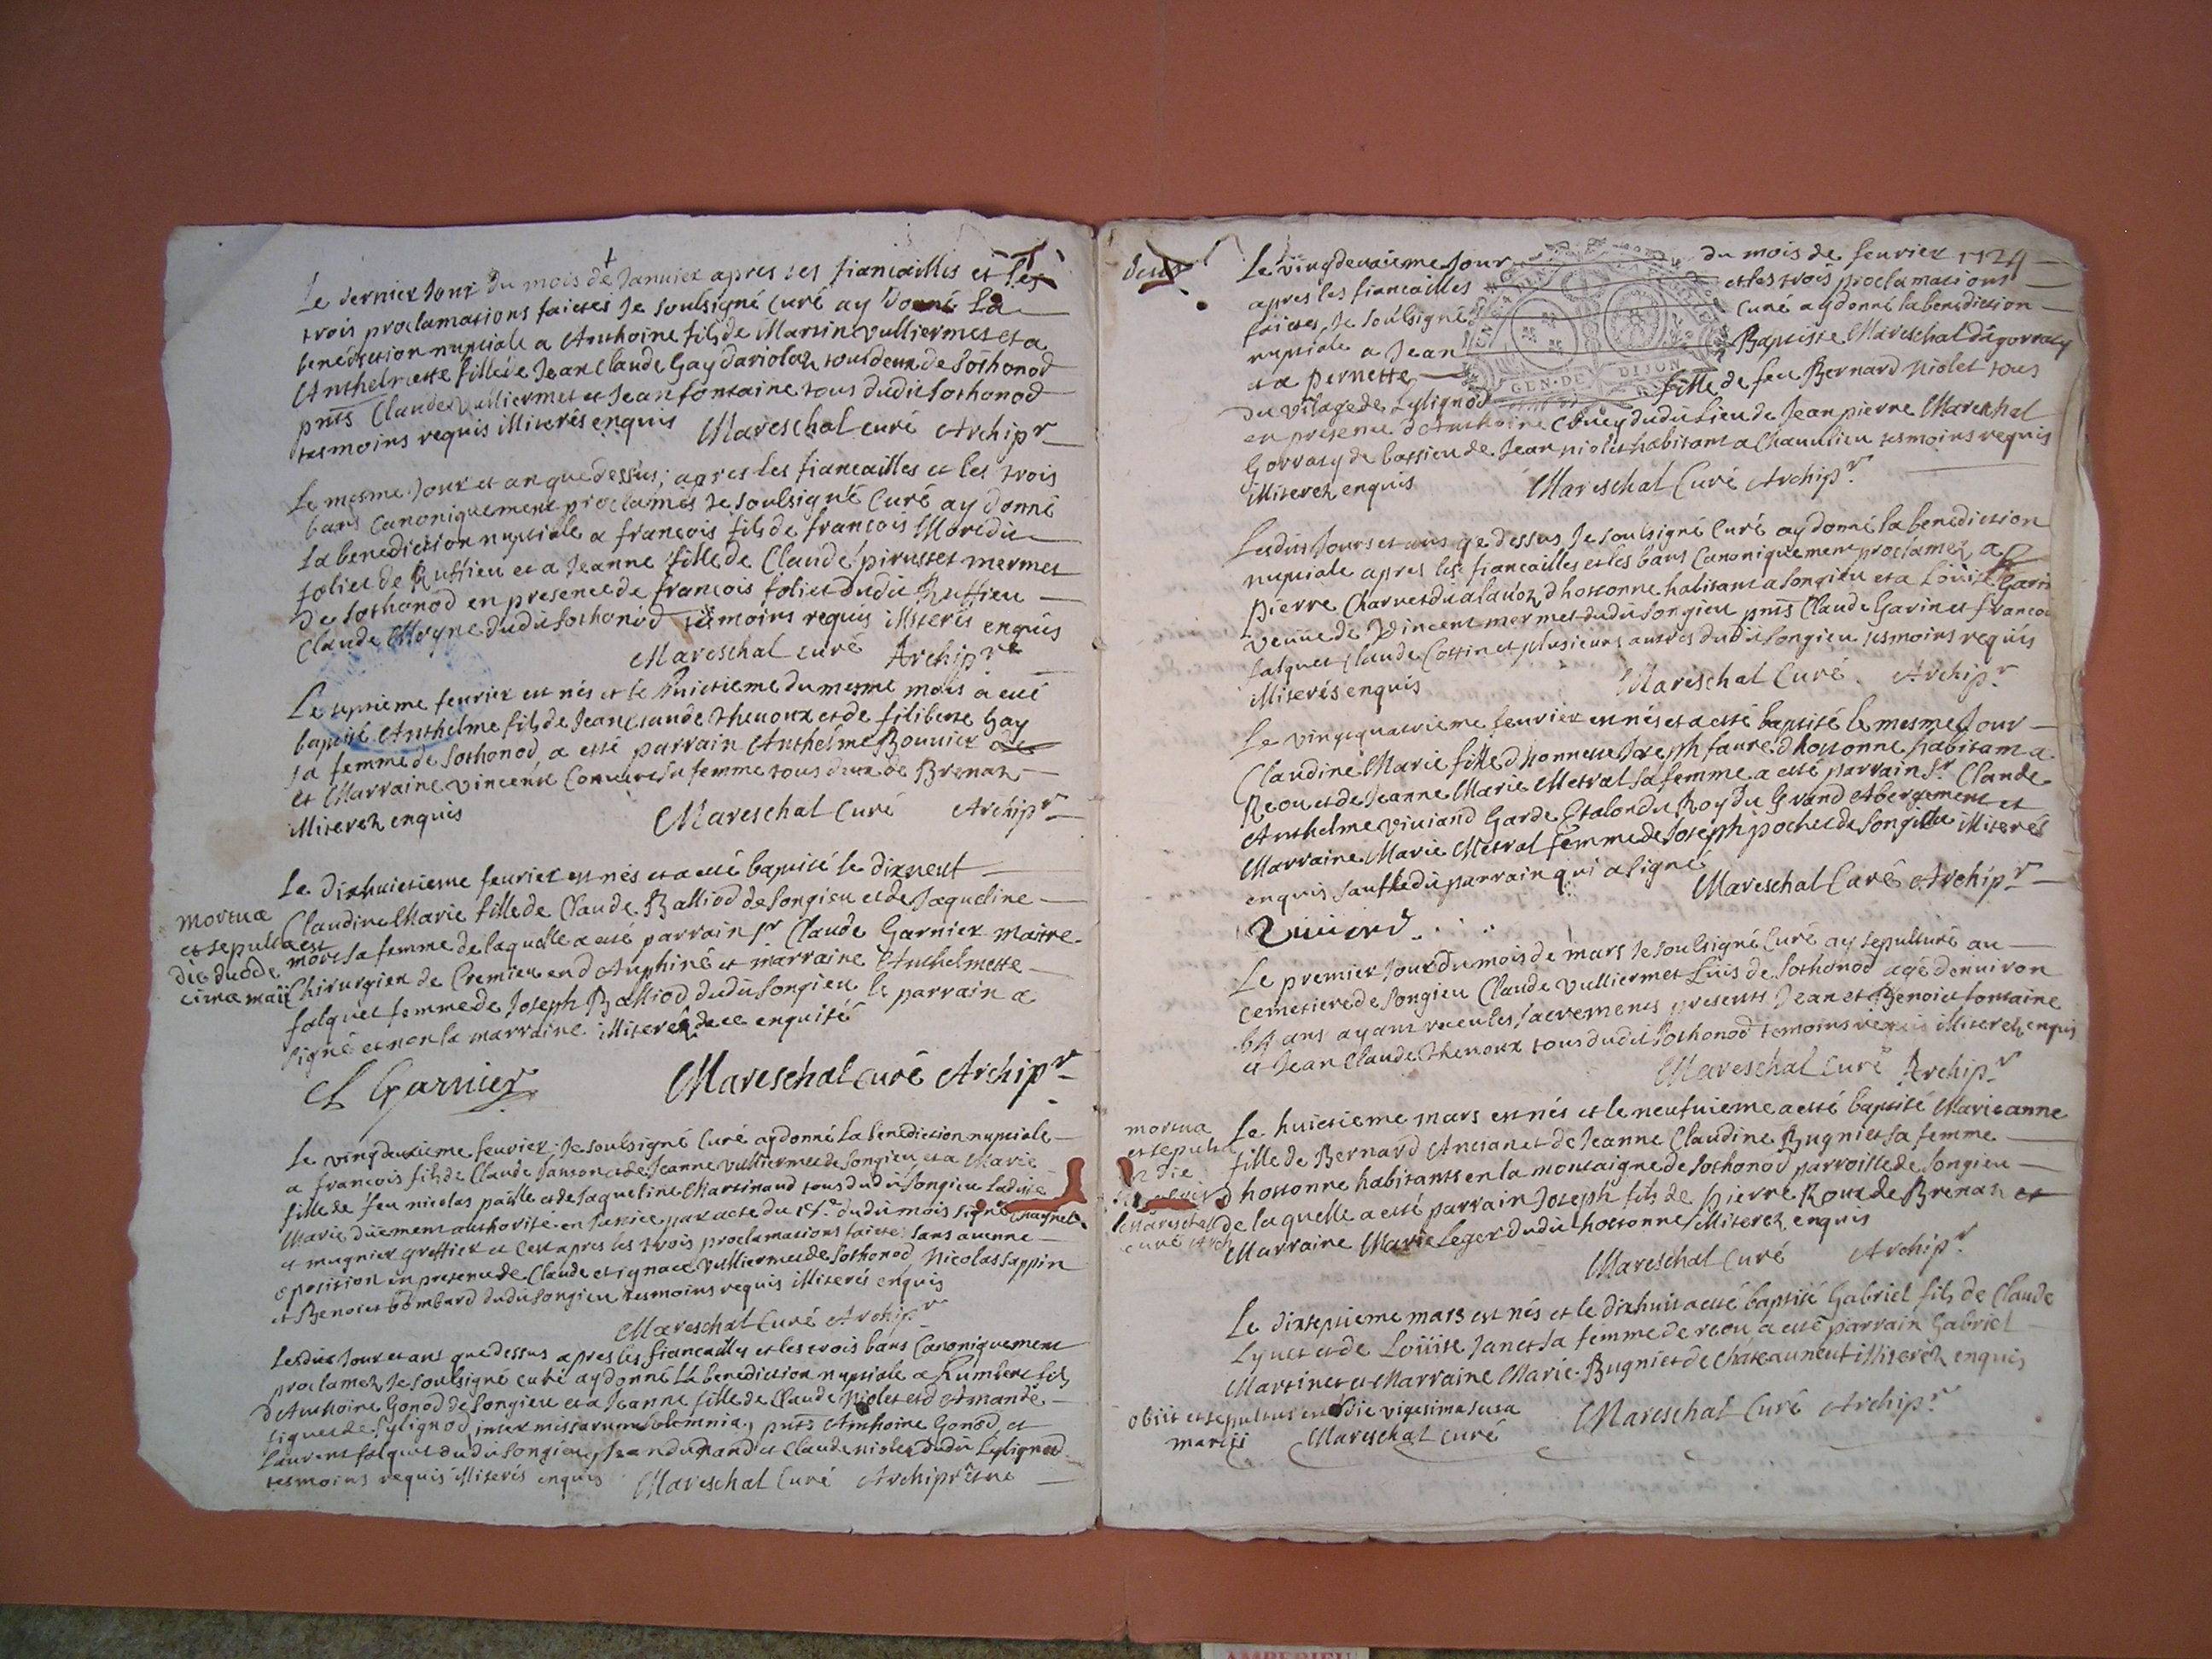 Le dernier Jour du mois de Januier apres les fiancailles et les
trois proclamations faictes Je soulsigné Curé ay donné La
benediction nuptiale a Anthoine fils de Martin vulliermet et a
Anthelmette fille de Jean Claude Gay dariolaz tous deux de Sothonod
pnts Claude Vulliermet et Jean fontaine tous dudit Sothonod
tesmoins requis Illiterés enquis Mareschal curé Archipr
Le mesme Jour et an que dessus; apres les fiancailles et les trois
bans Canoniquement proclamés Je soulsigné Curé ay donné
La benediction nuptiale a françois fils de françois Moredu
foliet de Ruffieu et a Jeanne fille de Claude pirusset mermet
de Sothonod en presence de françois foliet dudit Ruffieu
Claude Moyne dudit Sothonod tesmoins requis illiterés enquis
Mareschal curé Archipr
Le septieme feurier est nés et le huictieme du mesme mois a eté
baptisé Anthelme fils de Jean Claude Thenoux et de filiberte Gay
sa femme de Sothonod a esté parrain Anthelme Bouuier
et Marraine vincente sa femme tous deux de Brenaz
Illiterez enquis Mareschal Curé Archipr
Le dixhuictieme feurier est nés et a eté baptisé le dixneuf
Claudine Marie fille de Claude Balliod de Songieu et de Jaqueline
mortua
et sepulta est
die duode
cima maij
more sa femme de laquelle a eté parrain sr Claude Garnier maitre
Chirurgien de Cremieu en dauphiné et marraine Anthelmette
falquet femme de Joseph Balliod dudit Songieu le parrain a
signé et non la marraine illiteréz de ce enquisé
Cl Garnier Mareschal curé Archipr
Le vingdeuxieme feurier Je soulsigné Curé ay donné la benediction nuptiale
a francois fils de Claude Janson et de Jeanne vulliermet de Songieu et a Marie
fille de feu nicolas paille et de Jaqueline Martinand tous dudit Songieu Ladite
Marie duement authorisé en Justice par acte du 15e dudit mois signé Chaynel
et mugnier greffier et c'est apres les trois proclamations faicte sans aucune
oposition en presence de Claude et ignace Vulliermet de Sothonod Nicolas Sappin
et Benoit bombard dudit Songieu tesmoins requis illiterés enquis
Mareschal Curé Archipr
Lesdits Jour et ans que dessus apres les fiancailles et les trois bans Canoniquement
proclamez Je soulsigné curé ay donné la benediction nuptiale a Rumbert fils
d'Anthoine Gonod de Songieu et a Jeanne fille de Claude Niolet et d'Amandé
de Sylignod inter missarum solemnia, pnts Anthoine Gonod, et
Laurent falquet dudit Songieu Jean durand et Claude niolet dudit Sylignod
tesmoins requis illiterés enquis Mareschal Curé Archiprêtre
Le vingdeuxieme Jour du mois de feurier 1724
apres les fiancailles et les trois proclamations
faictes, Je soulsigné Curé ay donné la benediction
nuptiale a Jean Baptiste Mareschal dit gorraty
et a pernette fille de feu Bernard niolet tous
GEN·DE DIJON
du vilage de Sylignod
en presence d'Anthoine Cluey dudit Lieu de Jean pierre Mareschal
Gorraty de bassieu de Jean niolet habitant a Chaunlieu tesmoins requis
illiterez enquis Mareschal Curé Archipr
Ledits Jours et ans que dessus, Je soulsigné Curé ay donné la benediction
nuptiale apres les fiancailles et les bans Canoniquement proclamez a
pierre Charuet du alauoz d'hotonne habitant a Songieu et a Loüise Garin
veuue de Vincent mermet dudit Songieu pnts Claude Garin et francoi
falquet Claude Cottin et plusieurs autres dudit Songieu tesmoins requis
illiterés enquis Mareschal Curé Archipr
Le vingtquatrieme feurier est nés et a esté baptisé le mesme Jour
Claudine Marie fille d'honneste Joseph faure d'hotonne habitant a
Reou et de Jeanne Marie Metral sa femme a esté parrain Sr Claude
Anthelme viuiand Garde Etalon du Roy du Grand Abergement et
Marraine Marie Metral femme de Joseph pochet de Songieu illiterés
enquis sauf ledit parrain qui a signé
Mareschal Curé Archipr
Viuiand
Le premier Jour du mois de mars Je soulsigné Curé ay sepulturé au
cemetiere de Songieu Claude Vulliermet Luis de Sothonod agé denuiron
64 ans ayant receu les sacrements presents Jean et Benoit fontaine
et Jean Claude Thenoux tous dudit Sothonod temoins requis illiterez enquis
Mareschal Curé Archipr
Le huictieme mars est nés et le neufuieme a esté baptisé Marieanne
fille de Bernard Ancian et de Jeanne Claudine Bugniet sa femme
mortua
et sepulta
die
Mareschal
curé Arch
d'hotonne habitants en la montaigne de Sothonod parroisse de Songieu
de laquelle a esté parrain Joseph fils de pierre Roux de Brenaz et
Marraine Marie Leger dudit hotonne illiterez enquis
Mareschal Curé Archipr
Le dixseptieme mars est nés et le dixhuit a esté baptisé Gabriel fils de Claude
Lyuet et de Loüise Janet sa femme de reou a esté parrain Gabriel
Martinet et Marraine Marie Bugniet de Chateauneuf illiteréz enquis
obiit et sepultus est die vigesima sexta
martij Mareschal curé Mareschal Curé Archipr